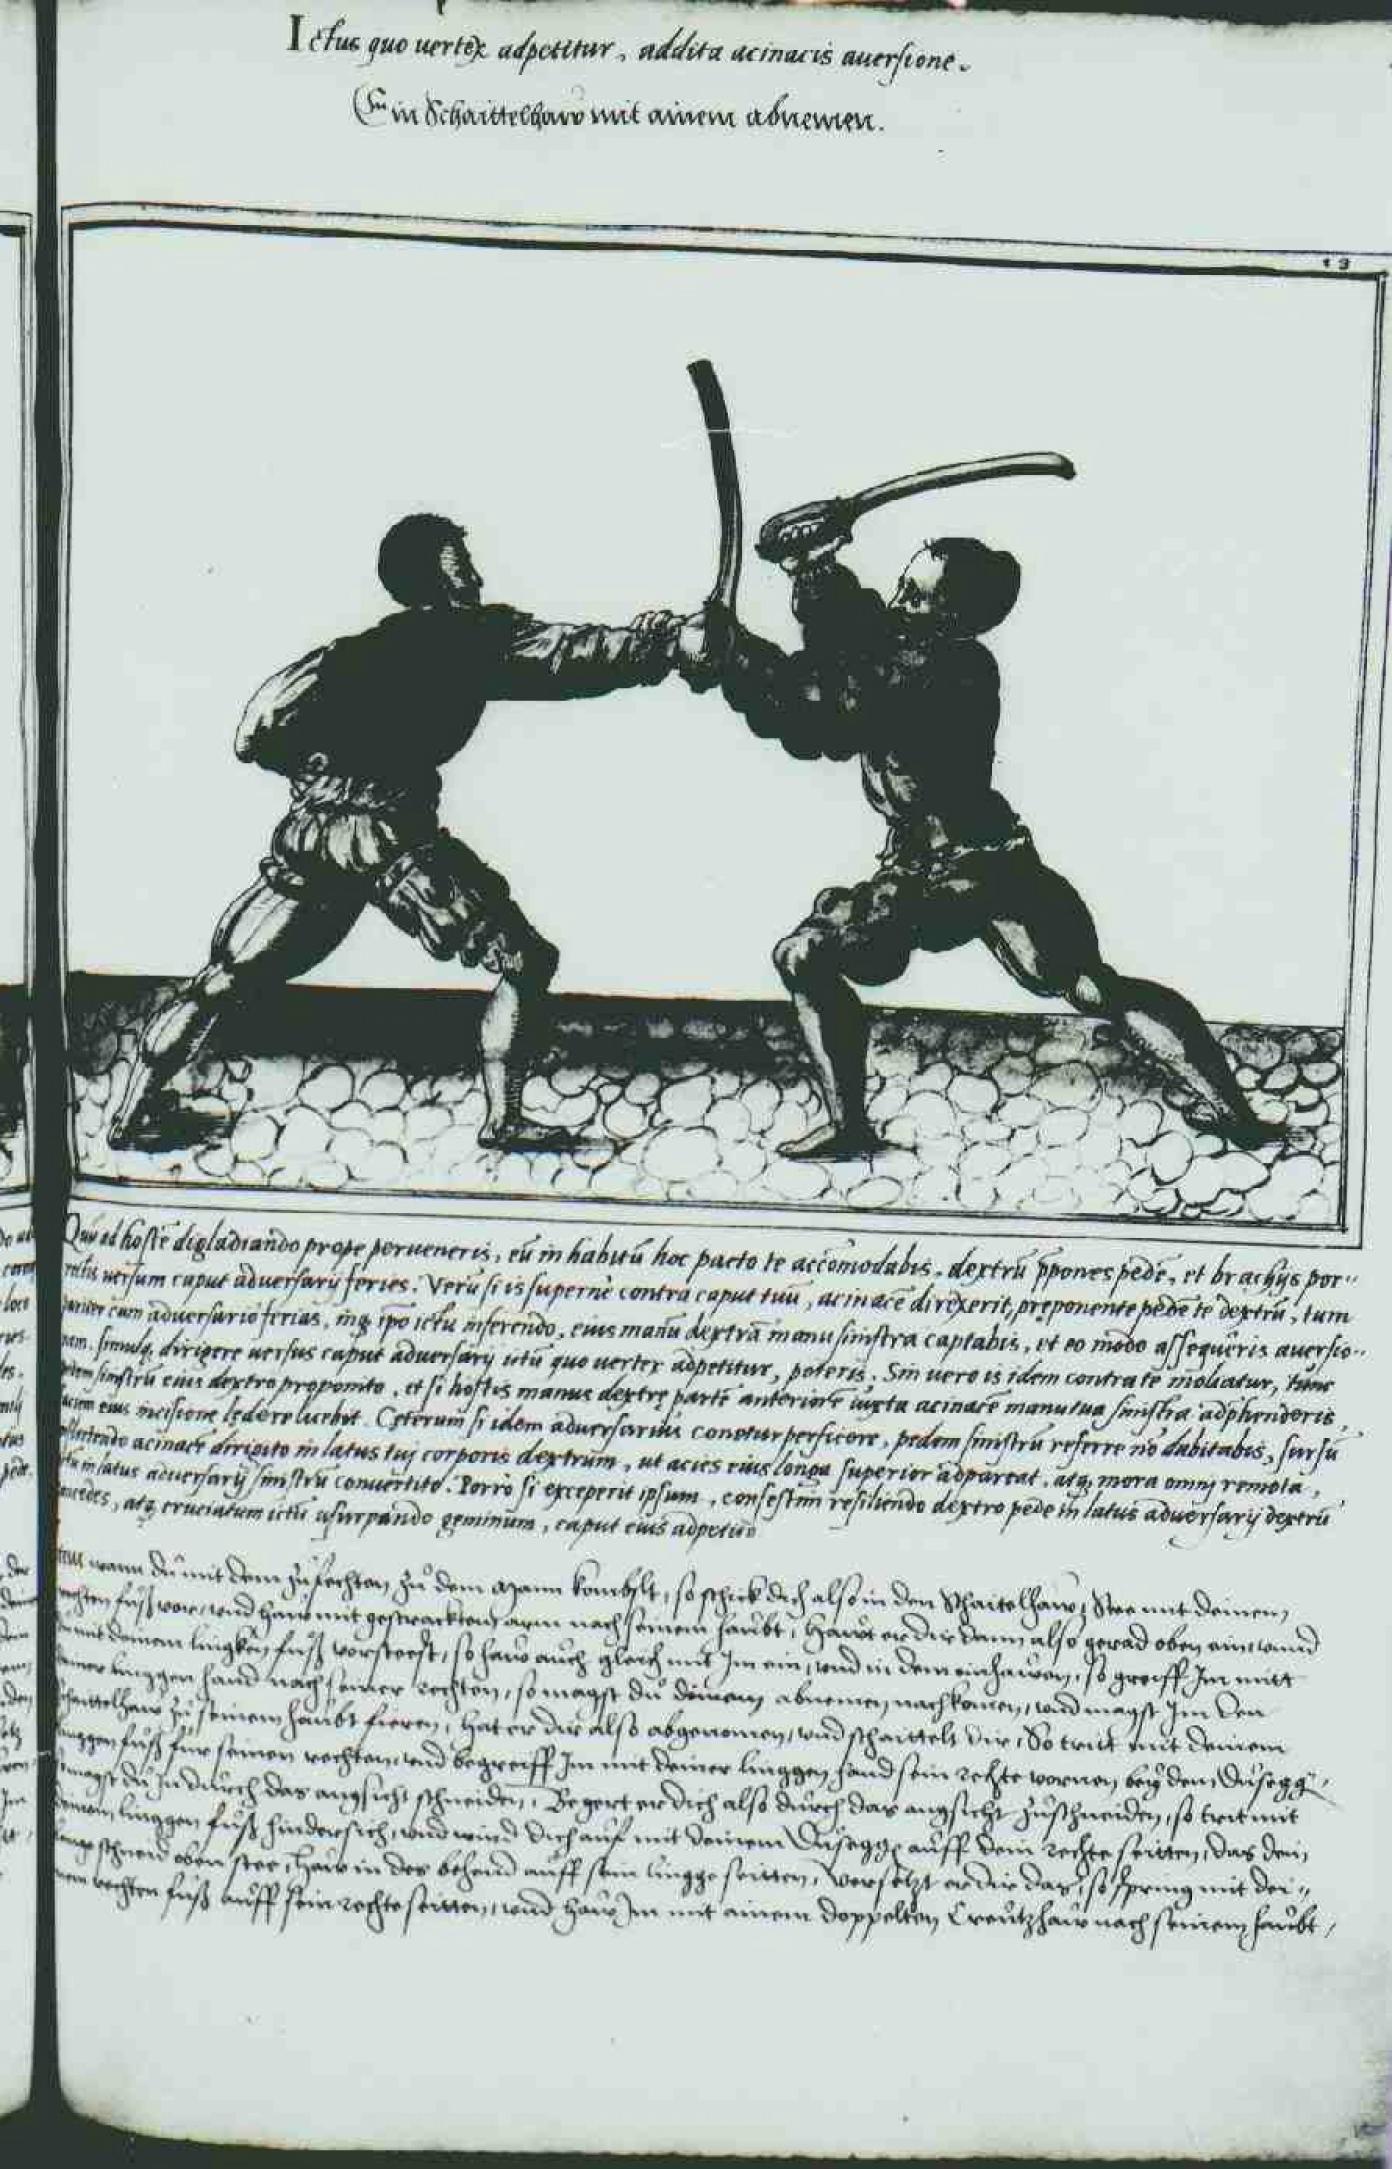 Ictus quo uertex adpetitur, addita acinacis auersione.
Ein Schaittelhaw mit ainem abnemen.
Quū ad hostē digladiando prope perueneris, eū in habitū hoc pacto te accōmodabis, dextrū p̄pones pedē, et brachijs por-
rectis uersum caput aduersarij feries. Verū si is superne contra caput tuū, acinacē direxerit, preponente pedē te dextrū, tum
pariter cum aduersario ferias, inq̨ ipō ictu inferendo, eius manū dextrā manu sinistra captabis, et eo modo assequēris auersio-
nem, simulq̨ dirigere uersus caput aduersarij ictū quo uertex adpetitur, poteris. Sin uero is idem contra te moliatur, tunc
pedem sinistrū eius dextro proponito, et si hostis manus dextrę partē anteriorē iuxta acinacē manu tua sinistra adphenderis,
faciem eius incisione lędere licebit. Cęterum si idem aduersarius conetur perficere, pedem sinistrū referre nō dubitabis, sursū
acinacē dirigito in latus tuj corporis dextrum, ut acies eius longa superior adpareat, atq̨ mora omnj remota,
ictū in latus aduersarij sinistrū conuertito. Porro si exceperit ipsum, confestim resiliendo dextro pede in latus aduersarij dextrū
accedes, atq̨ cruciatum ictū usurpando geminum, caput eius adpetito
Item wann du mit dem zufechten zu dem Mann kombst, so schick dich also in den Schaitelhaw, Stee mit deinem
rechten fuß vor, vnd haw mit gestrackten arm nach seinem haubt, Hawt er dir dann also gerad oben ein, vnnd
du mit deinem lingken fuß vorsteest, so haw auch gleich mit Im ein, vnd in dem einhawen, so greiff Im mitt
deiner linggen hand nach seiner rechten, so magst du deinem abnemen nachkomen, vnd magst Im den
Schaittelhaw zu seinem haubt fieren, Hat er dir also abgenomen, vnd schaittelt dir, So trit mit deinem
linggen fuß fur seinen rechten, vnd begreiff Im mit deiner linggen hand sein rechte vornen bey dem Dusegg,
so magst du In durch das angsicht schneiden, Begert er dich also durch das angsicht zuschneiden, so trit mit
deinem linggen fuß hindersich, vnd wind dich auf mit deinem Dusegg auff dein rechte seitten, das dein
lange schneid oben stee, Haw in des behend auff sein lingge seitten, Versetzt er dir das, so spring mit dei-
nem rechten fuß auff sein rechte seitten, vnd haw Im mit ainem doppelten Creutzhaw nach seinem haubt,